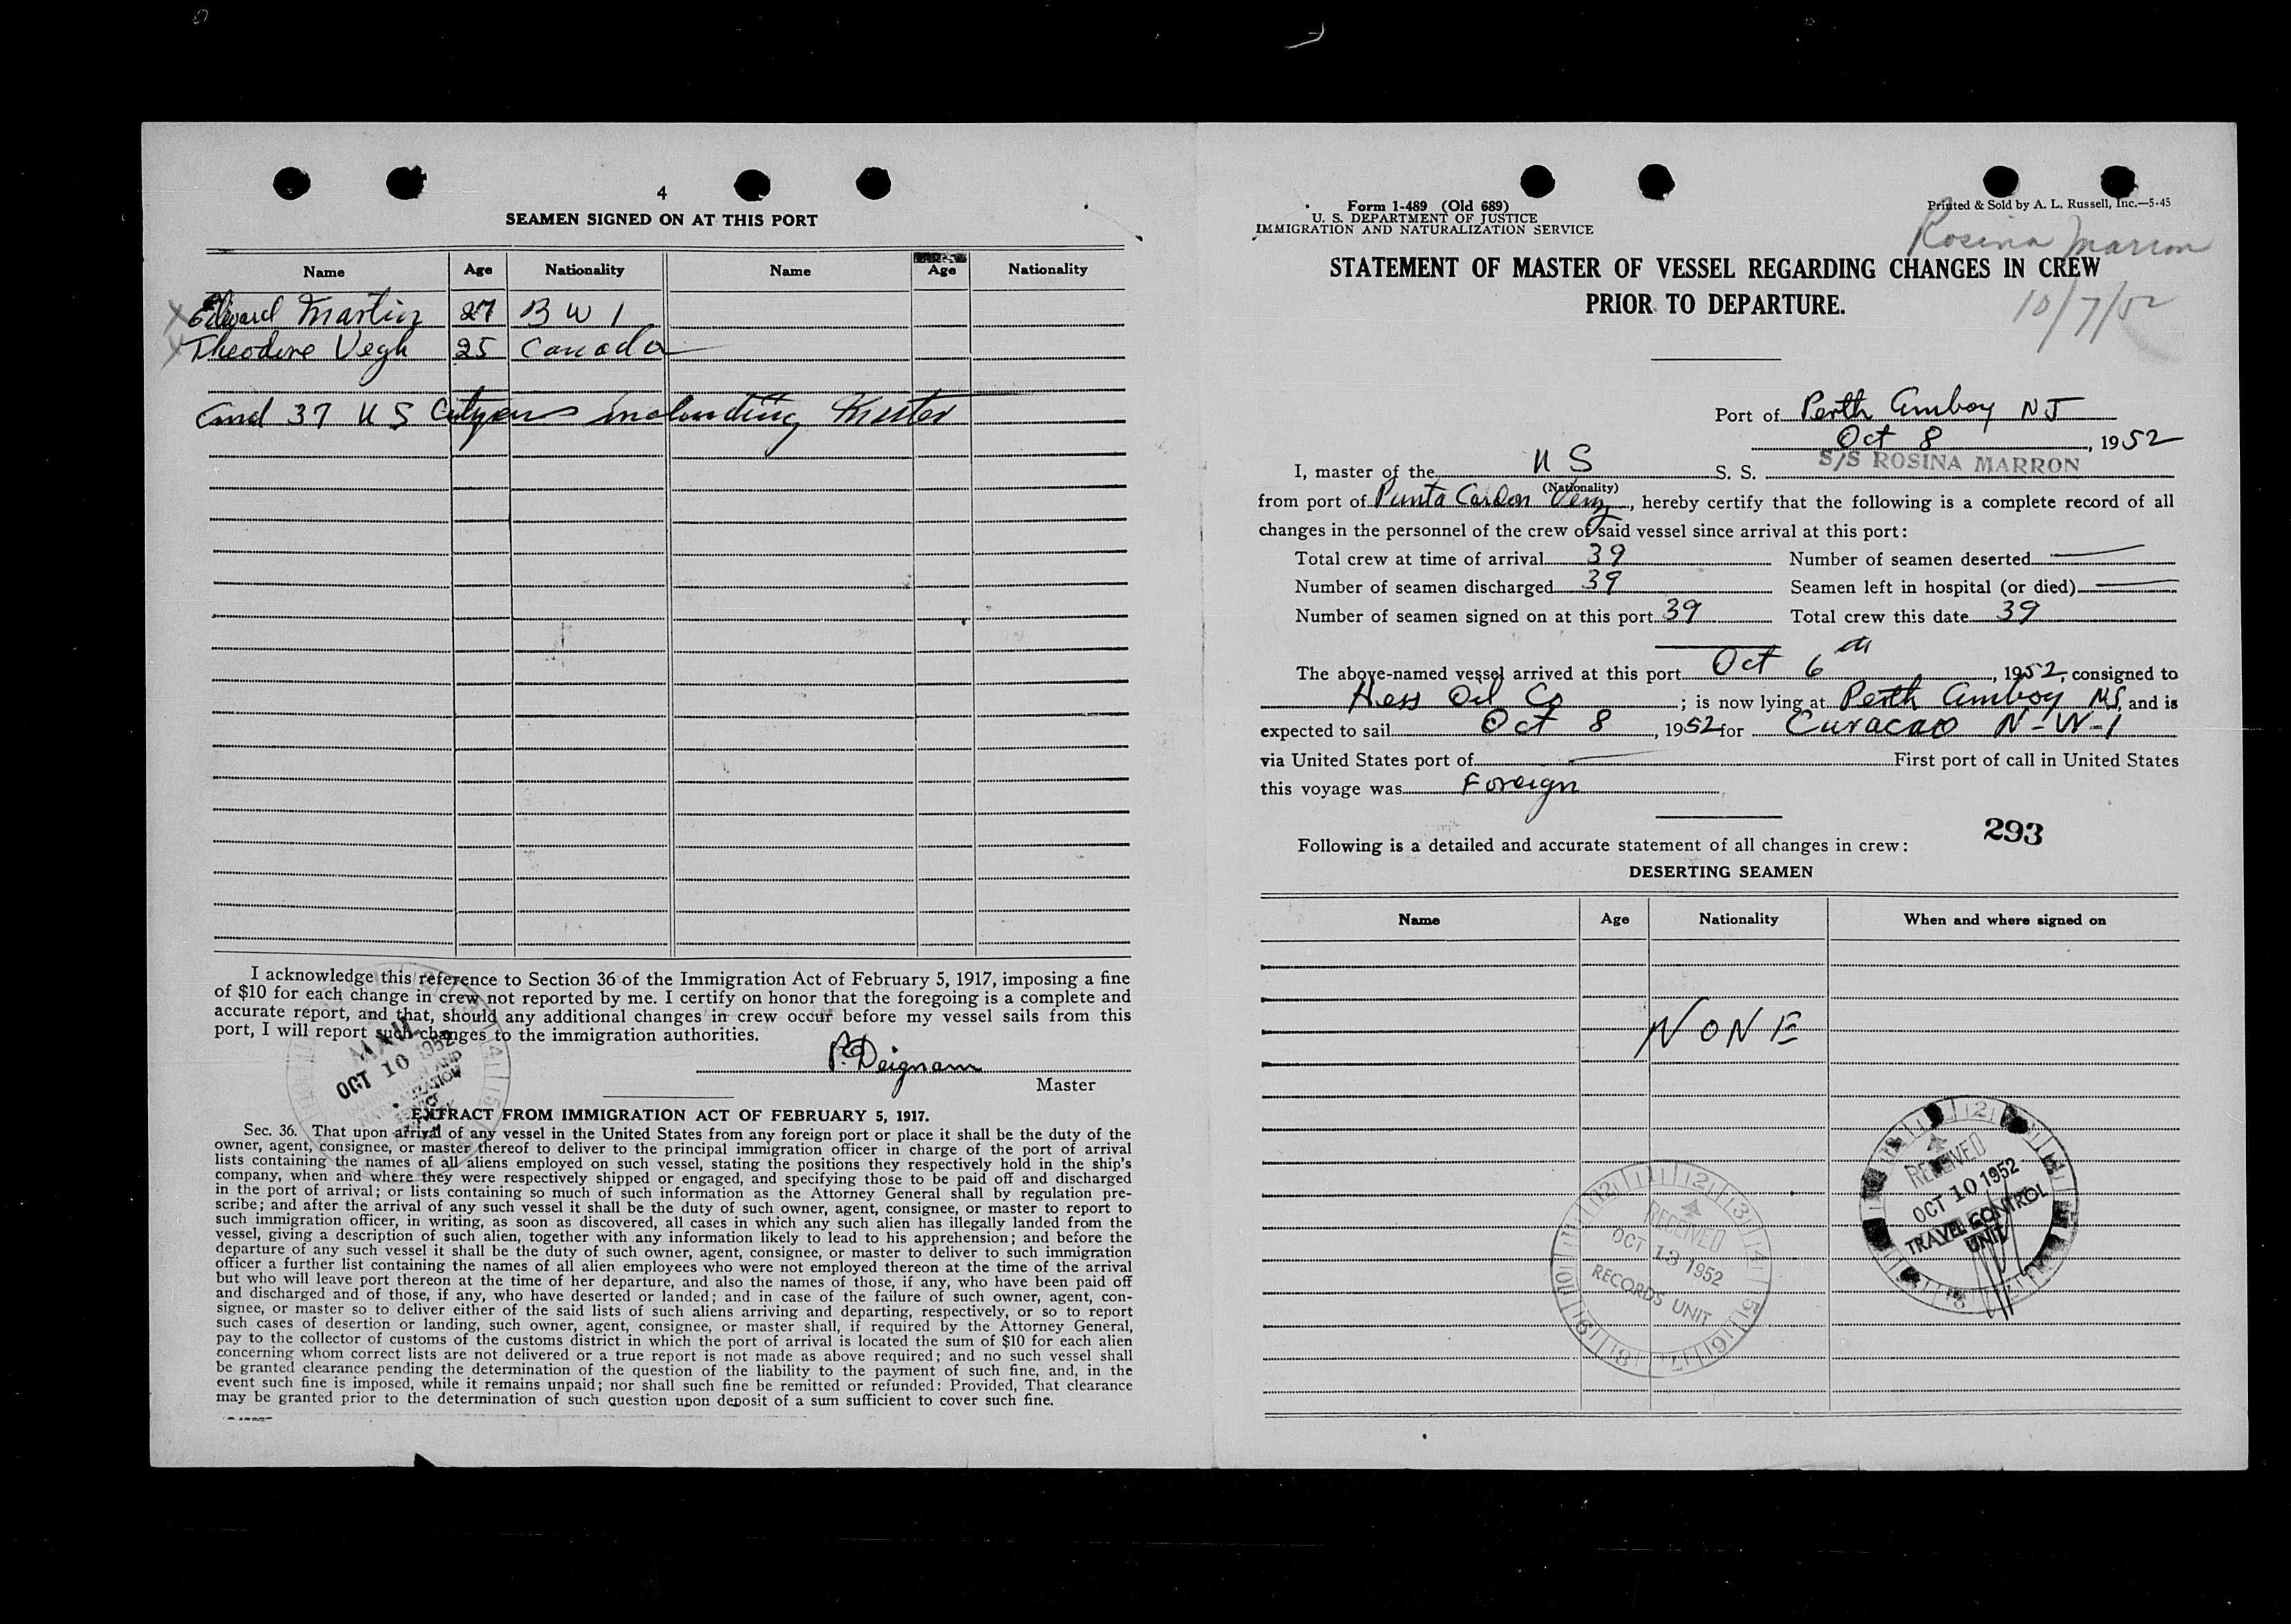 4
SEAMEN SIGNED ON AT THIS PORT
Name Age Nationality Name Age Nationality
Edward Martin 27 B W I
Theodore Vegh 25 Canada
and 37 U S Citizens including Master
I acknowledge this reference to Section 36 of the Immigration Act of February 5, 1917, imposing a fine
of $10 for each change in crew not reported by me. I certify on honor that the foregoing is a complete and
accurate report, and that, should any additional changes in crew occur before my vessel sails from this
port, I will report such changes to the immigration authorities.
MAIL
OCT 10 1952
P. Deignam
Master
EXTRACT FROM IMMIGRATION ACT OF FEBRUARY 5, 1917.
Sec. 36. That upon arrival of any vessel in the United States from any foreign port or place it shall be the duty of the
owner, agent, consignee, or master thereof to deliver to the principal immigration officer in charge of the port of arrival
lists containing the names of all aliens employed on such vessel, stating the positions they respectively hold in the ship's
company, when and where they were respectively shipped or engaged, and specifying those to be paid off and discharged
in the port of arrival; or lists containing so much of such information as the Attorney General shall by regulation pre-
scribe; and after the arrival of any such vessel it shall be the duty of such owner, agent, consignee, or master to report to
such immigration officer, in writing, as soon as discovered, all cases in which any such alien has illegally landed from the
vessel, giving a description of such alien, together with any information likely to lead to his apprehension; and before the
departure of any such vessel it shall be the duty of such owner, agent, consignee, or master to deliver to such immigration
officer a further list containing the names of all alien employees who were not employed thereon at the time of the arrival
but who will leave port thereon at the time of her departure, and also the names of those, if any, who have been paid off
and discharged and of those, if any, who have deserted or landed; and in case of the failure of such owner, agent, con-
signee, or master so to deliver either of the said lists of such aliens arriving and departing, respectively, or so to report
such cases of desertion or landing, such owner, agent, consignee, or master shall, if required by the Attorney General,
pay to the collector of customs of the customs district in which the port of arrival is located the sum of $10 for each alien
concerning whom correct lists are not delivered or a true report is not made as above required; and no such vessel shall
be granted clearance pending the determination of the question of the liability to the payment of such fine, and, in the
event such fine is imposed, while it remains unpaid; nor shall such fine be remitted or refunded: Provided, That clearance
may be granted prior to the determination of such question upon deposit of a sum sufficient to cover such fine.
Form 1-489 (Old 689)
U. S. DEPARTMENT OF JUSTICE
IMMIGRATION AND NATURALIZATION SERVICE
Printed & Sold by A. L. Russell, Inc.—5-45
Rosina Marron
STATEMENT OF MASTER OF VESSEL REGARDING CHANGES IN CREW
PRIOR TO DEPARTURE.
10/7/52
Port of Perth Amboy NJ
Oct 8, 1952
I, master of the U S S. S. S/S ROSINA MARRON
(Nationality)
from port of Punta Cardon Venz, hereby certify that the following is a complete record of all
changes in the personnel of the crew of said vessel since arrival at this port:
Total crew at time of arrival 39 Number of seamen deserted —
Number of seamen discharged 39 Seamen left in hospital (or died) —
Number of seamen signed on at this port 39 Total crew this date 39
The above-named vessel arrived at this port Oct 6th, 1952, consigned to
Hess Oil Co; is now lying at Perth Amboy NJ, and is
expected to sail Oct 8, 1952 for Curacao N-W-I
via United States port of — First port of call in United States
this voyage was Foreign
293
Following is a detailed and accurate statement of all changes in crew:
DESERTING SEAMEN
Name Age Nationality When and where signed on
NONE
RECEIVED
OCT 10 1952
TRAVEL CONTROL
UNIT
RECEIVED
OCT 13 1952
RECORDS UNIT